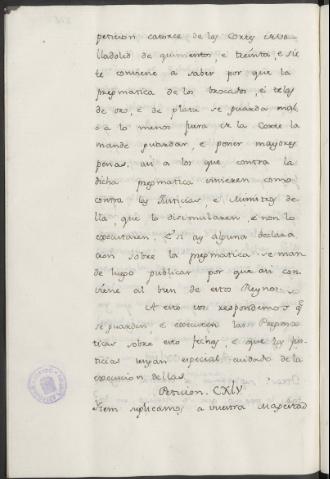 peticion catorce de las Cortes de Va-
lladolid de quinientos, e treinta, e sie
te conviene a saber por que la
pregmatica de los brocados, ei telas
de oro, e de plata se guarda mal,
o a lo menos fuera de la Corte la
mande guardar, e poner mayores
penas, asi a los que contra la
dicha pregmatica vinieren como
contra las Justicias, e Ministros de
lla, que lo disimularen, e non lo
executaren, E si ay alguna declara
cion sobre la pregmatica se man
de luego publicar por que asi con
viene al bien de estos Reynos.
A esto vos respondemos q̃
se guarden, e executen las Pregma
ticas sobre esto fechas, e que las Jus
ticias tengan especial cuidado de la
execucion dellas.
Peticion. CXLV
Item suplicamos a vuestra Magestad